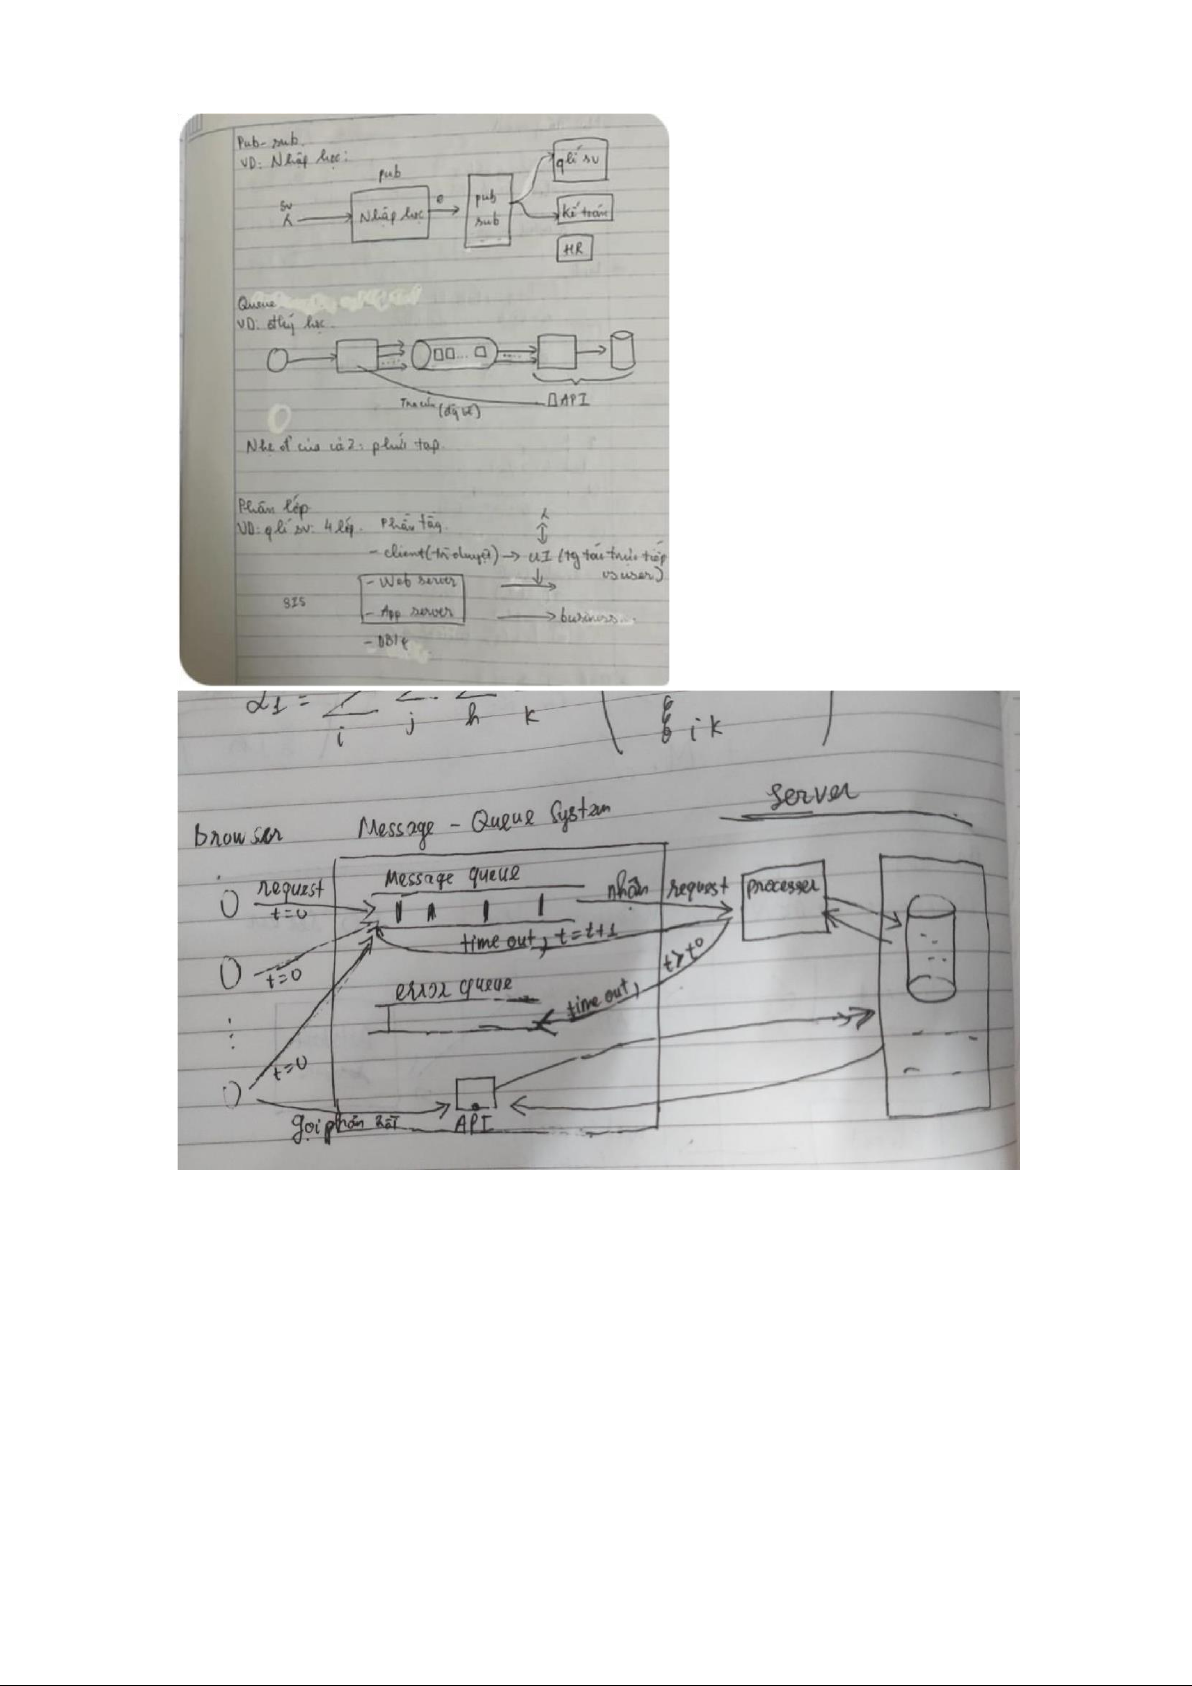 Pub-sub.
VD: Nhập học:
pub
qlí sv
sv
Nhập học
e
pub
sub
kế toán
HR
Queue
VD: đký học.
...
Tra cứu (đg về)
API
Nhc đ của cả 2: phức tạp.
Phân lớp
VD: qlí sv: 4 lớp. Phân tầng
- client (trì duyệt) → UI (tg tác trực tiếp
vs user)
- Web server
SIS
- App server → business...
α1 =
i j h k
i k
Server
browser Message - Queue System
Message queue
request
t=0
nhận request
processer
time out, t=t+1
t=0
t>t⁰
error queue
time out,
t=0
gọi phản hồi
API